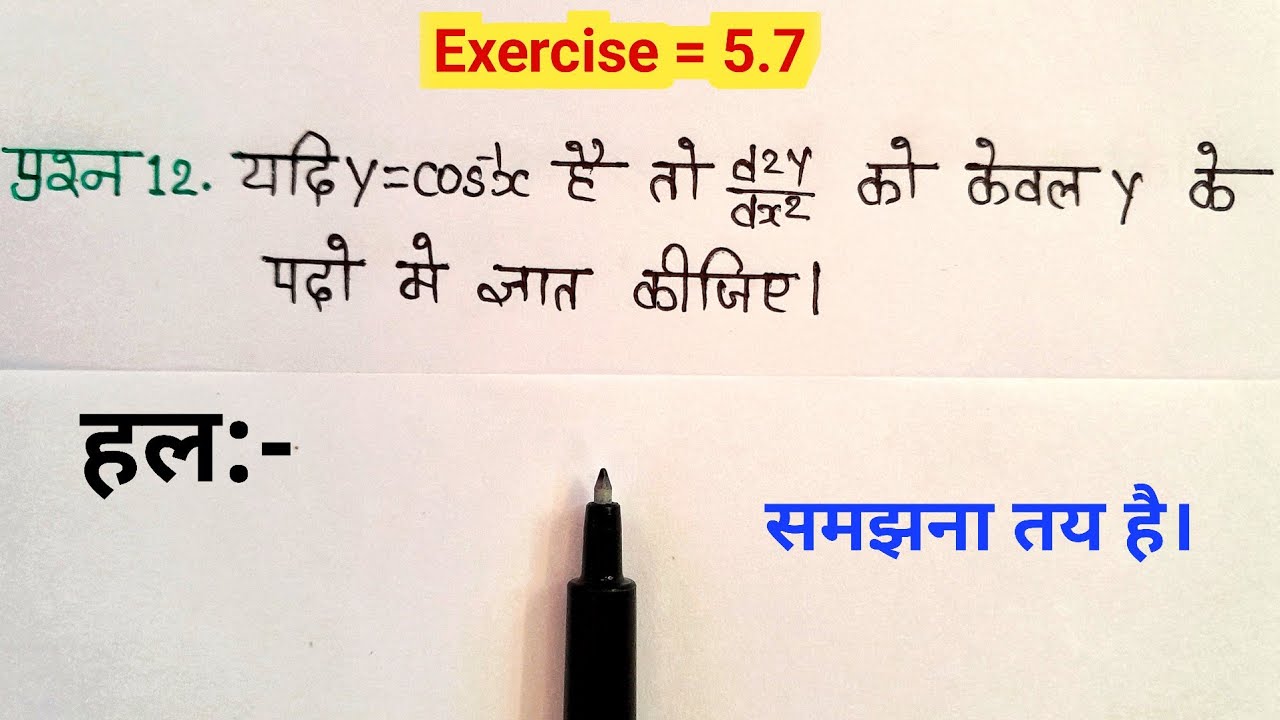 Exercise = 5.7
प्रश्न 12. यदि y=cos⁻¹x है तो d2y/dx2 को केवल y के
पदो मे ज्ञात कीजिए।
हल:-
समझना तय है।